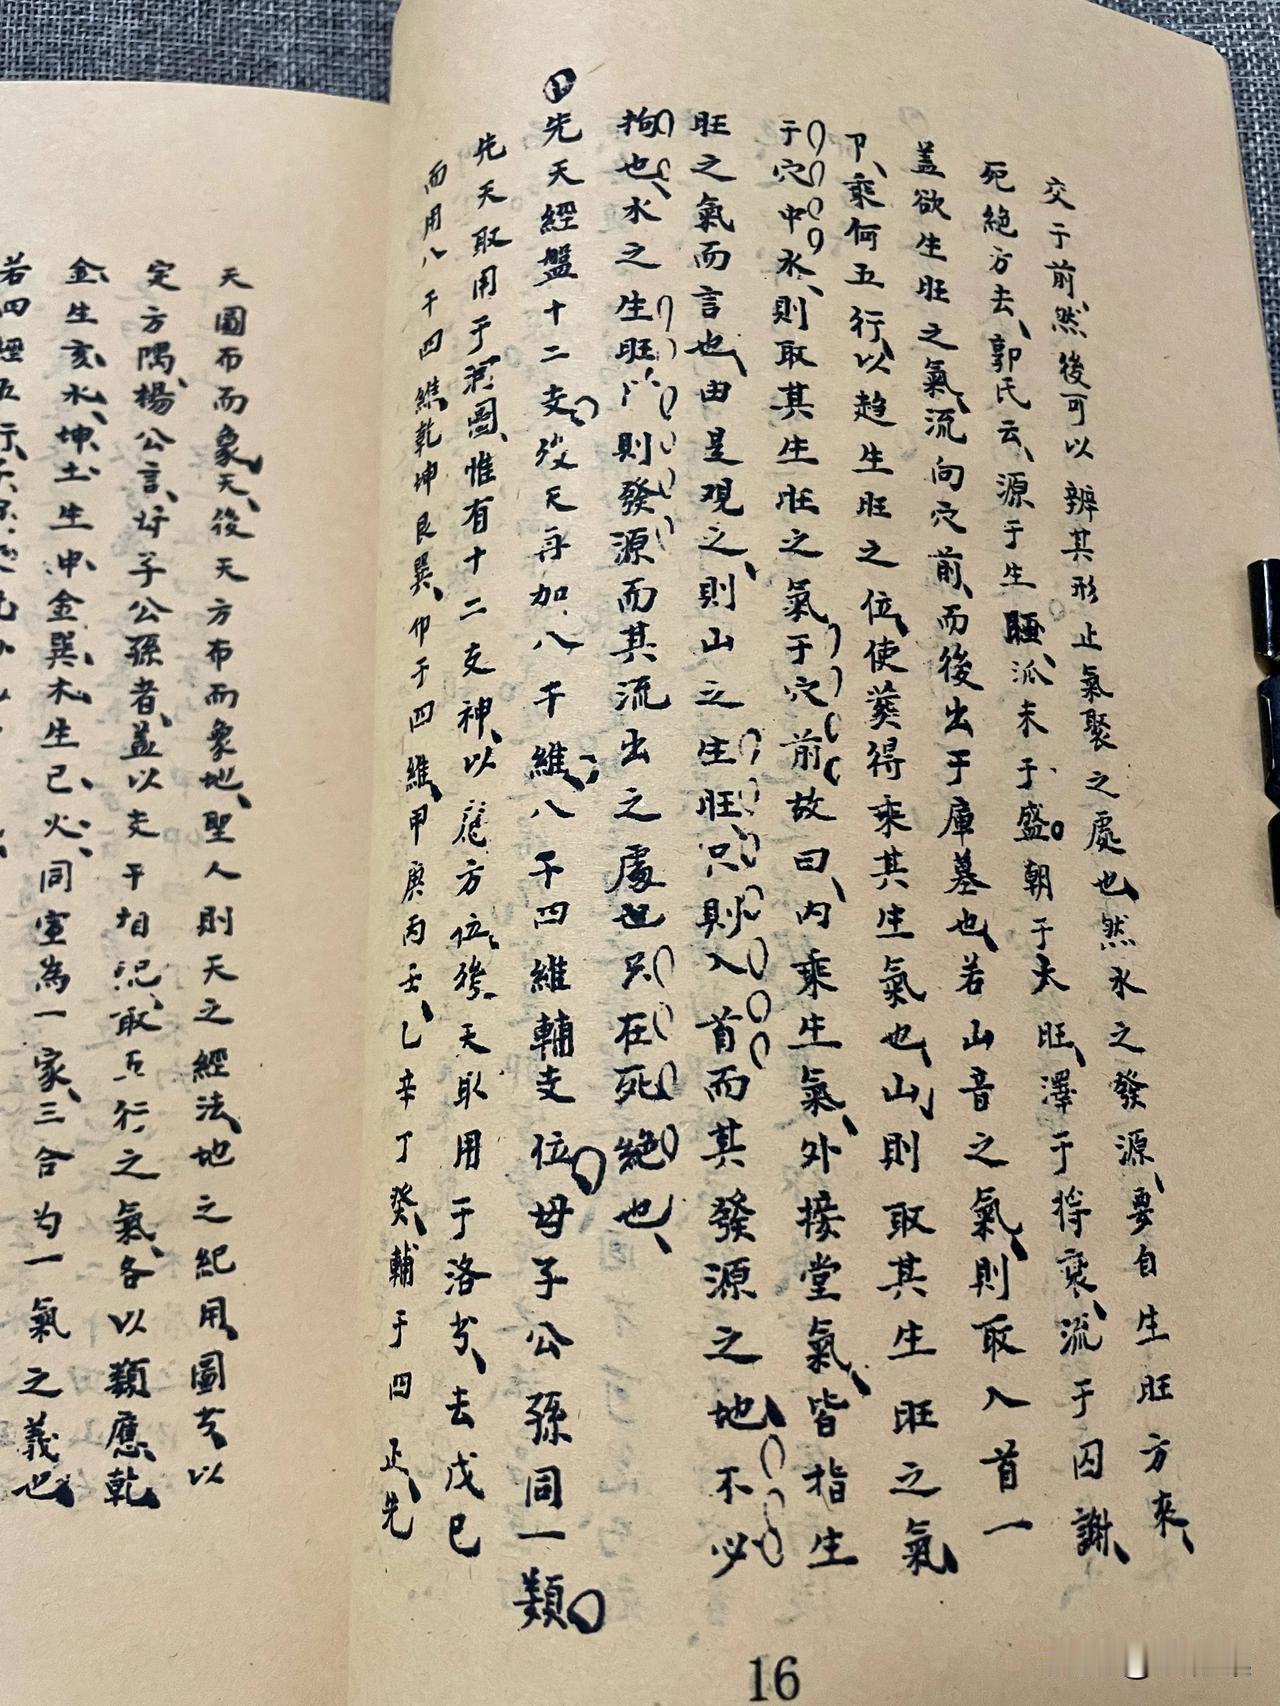 交于前、然後可以辨其形止氣聚之處也、然水之發源、要自生旺方來、
死絕方去、郭氏云、源于生旺、派未于盛。朝于太旺、澤于將衰、流于囚謝、
蓋欲生旺之氣、流向穴前、而後出于庫墓也、若山音之氣、則取入首一
卩、乘何五行、以趋生旺之位、使葬得乘其生氣也、山則取其生旺之氣
于穴中、水、則取其生旺之氣于穴前、故曰、內乘生氣、外接堂氣、皆指生
旺之氣而言也、由是观之、則山之生旺、只則入首而其發源之地、不必
拘也、水之生旺、則發源而其流出之處也只在死絕也、
先天經盤十二支、後天再加八干維、八干四維輔支位、母子公孫同一類。
先天取用于河圖、惟有十二支神、以定方位、後天取用于洛書、去戊己
而用八干四維、乾坤艮巽、仰于四維、甲庚丙壬、乙辛丁癸、輔于四正、先
天圖布而象天、後天方布而象地、聖人則天之經法地之紀用、圖以
定方隅、楊公言、母子公孫者、蓋以支干相配、取五行之氣、各以類應、乾
金、生亥水、坤土生申、金巽木、生巳火、同宮為一家、三合为一氣之義也、
若四經五行、
16